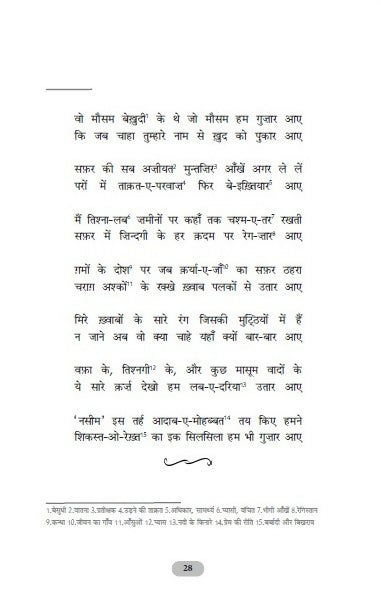 वो मौसम बेख़ुदी¹ के थे जो मौसम हम गुज़ार आए
कि जब चाहा तुम्हारे नाम से ख़ुद को पुकार आए
सफ़र की सब अज़ीयत² मुन्तज़िर³ आँखें अगर ले लें
परों में ताक़त-ए-परवाज़⁴ फिर बे-इख़्तियार⁵ आए
मैं तिश्ना-लब⁶ ज़मीनों पर कहाँ तक चश्म-ए-तर⁷ रखती
सफ़र में ज़िन्दगी के हर क़दम पर रेग-ज़ार⁸ आए
ग़मों के दोश⁹ पर जब क़र्या-ए-जाँ¹⁰ का सफ़र ठहरा
चराग़ अश्कों¹¹ के रक्खे ख़्वाब पलकों से उतार आए
मिरे ख़्वाबों के सारे रंग जिसकी मुट्ठियों में हैं
न जाने अब वो क्या चाहे यहाँ क्यों बार-बार आए
वफ़ा के, तिश्नगी¹² के, और कुछ मासूम वादों के
ये सारे क़र्ज़ देखो हम लब-ए-दरिया¹³ उतार आए
'नसीम' इस तर्ह आदाब-ए-मोहब्बत¹⁴ तय किए हमने
शिकस्त-ओ-रेख़्त¹⁵ का इक सिलसिला हम भी गुज़ार आए
1.बेसुधी 2.यातना 3.प्रतीक्षक 4.उड़ने की ताक़त 5.अधिकार, सामर्थ्य 6.प्यासी, वंचित 7.भीगी आँखें 8.रेगिस्तान
9.कन्धा 10.जीवन का गाँव 11.आँसुओं 12.प्यास 13.नदी के किनारे 14.प्रेम की रीति 15.बर्बादी और बिखराव
28